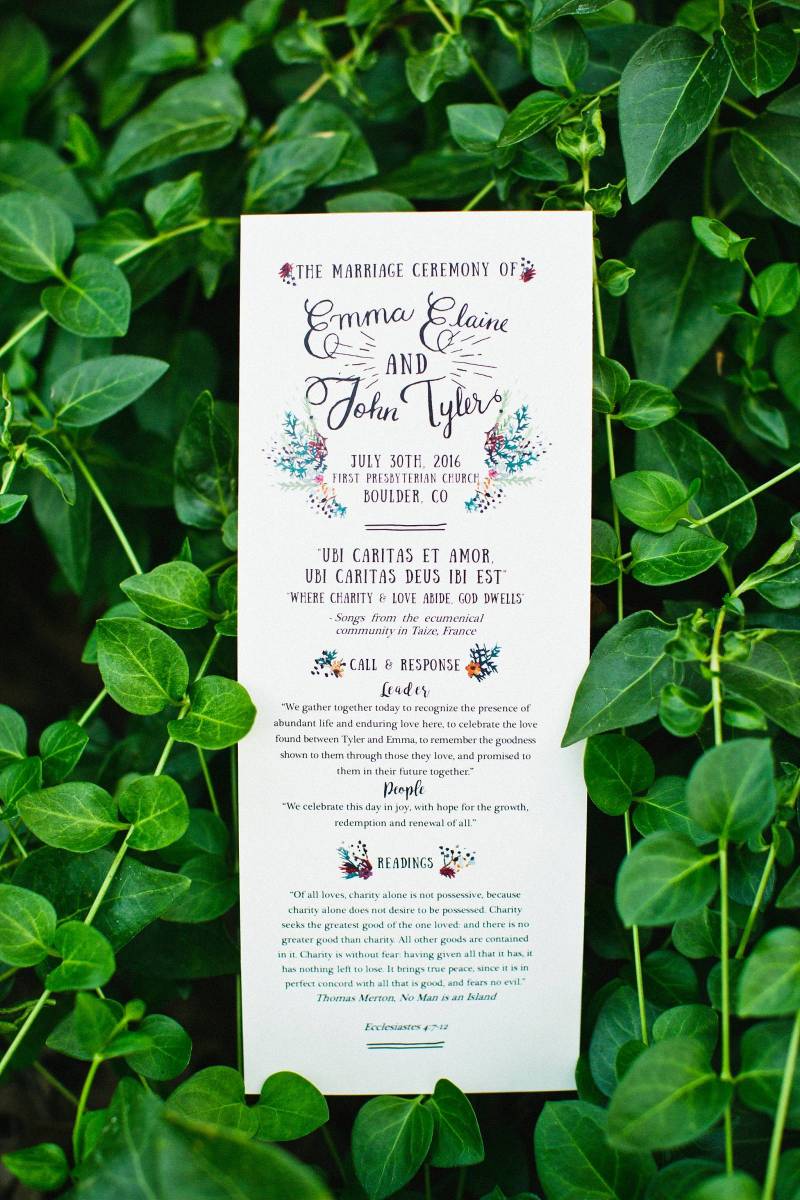 THE MARRIAGE CEREMONY OF
Emma Elaine
AND
John Tyler
JULY 30TH, 2016
FIRST PRESBYTERIAN CHURCH
BOULDER, CO
"UBI CARITAS ET AMOR,
UBI CARITAS DEUS IBI EST"
"WHERE CHARITY & LOVE ABIDE, GOD DWELLS"
- Songs from the ecumenical
community in Taize, France
CALL & RESPONSE
Leader
"We gather together today to recognize the presence of
abundant life and enduring love here, to celebrate the love
found between Tyler and Emma, to remember the goodness
shown to them through those they love, and promised to
them in their future together."
People
"We celebrate this day in joy, with hope for the growth,
redemption and renewal of all."
READINGS
"Of all loves, charity alone is not possessive, because
charity alone does not desire to be possessed. Charity
seeks the greatest good of the one loved: and there is no
greater good than charity. All other goods are contained
in it. Charity is without fear: having given all that it has, it
has nothing left to lose. It brings true peace, since it is in
perfect concord with all that is good, and fears no evil."
Thomas Merton, No Man is an Island
Ecclesiastes 4:7-12